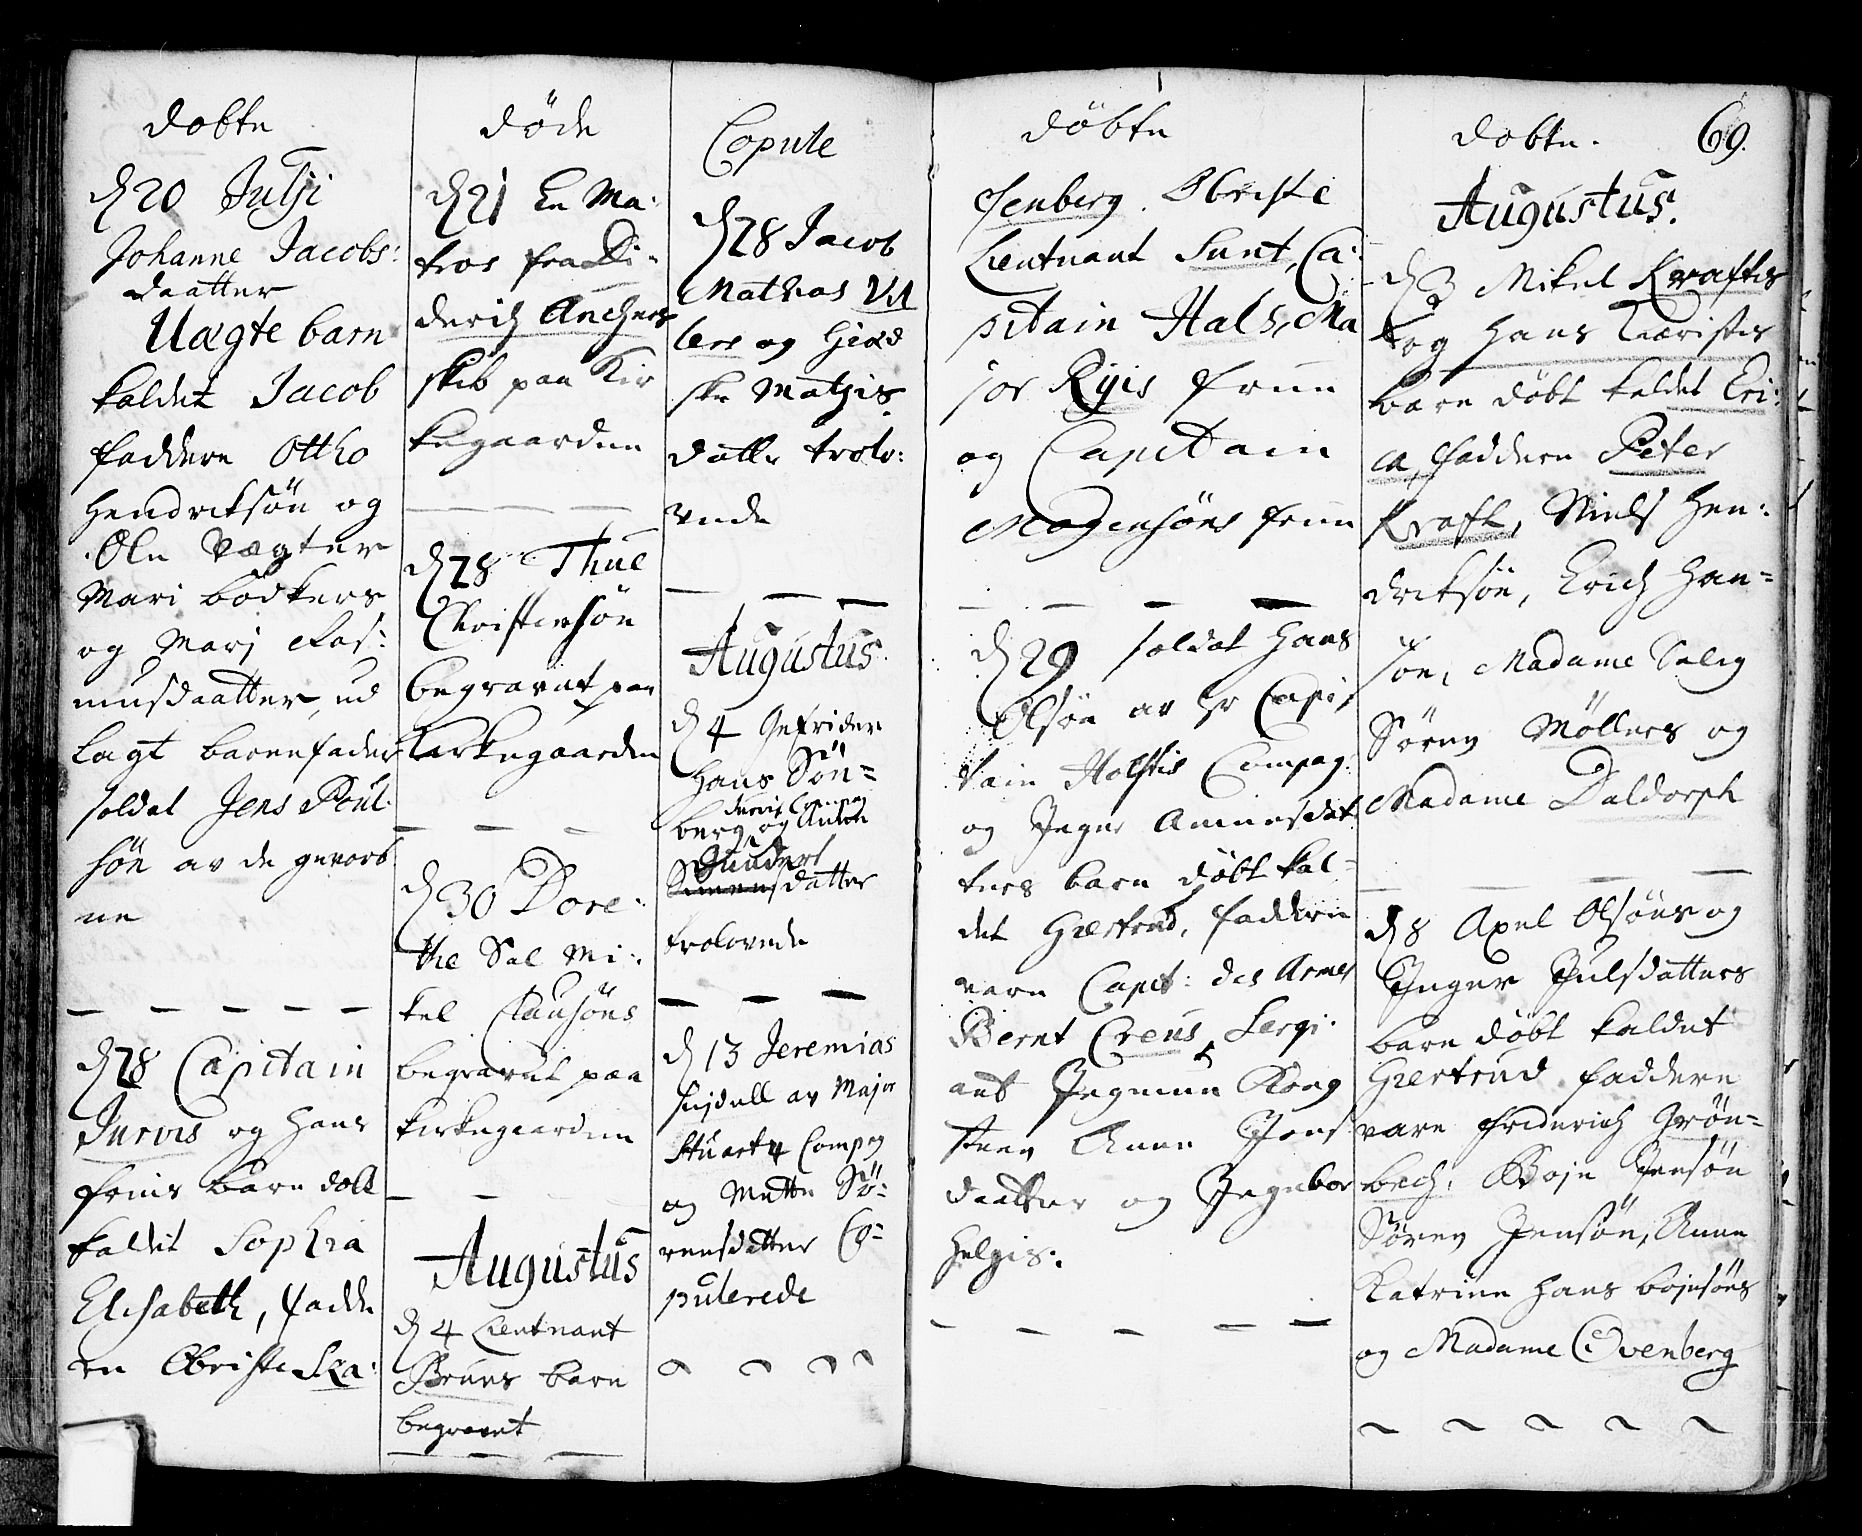 døbte
d 20 Julji
Johanne Jacobs:
daatter
Uægte barn
kaldet Jacob
faddere Ottho
Hendriksøn og
Ole Vægter
Mari bødkers
og Marj Ras:
musdaatter, ud
lagt barnefader
soldat Jens Poul
søn av de gevorb
ne
d 28 Capitain
Jurvis og hans
fruis barn døbt
kaldet Sophia
Elisabeth, fadde
re Obriste Ska:
døde
d 21 En Ma:
tros fra Di:
derich Anchers
skib paa Kir
kegaarden
d 28 Thue
Christensøn
begravet paa
kirkegaarden
d 30 Dore:
the Sal Mi:
kel Clausøns
begravet paa
kirkegaarden
Augustus
d 4 Lieutnant
Bruns barn
begravet
Copule
d 28 Jacob
Mathias
og
ske Matzis
datter trolo:
vede
Augustus
d 4 Gefrider
Hans Søn=
Compag
berg og Anne
Gunders
datter
trolovede
d 13 Jeremias
av Major
Stuart 4 Compag
og Mette Sø:
rensdatter Co=
pulerede
døbte
senberg. Obriste
Lieutnant Sunt, Ca:
pitain Hals, Ma
jor Rÿis frue
og Capitain
Mogensøns frue
d 29 soldat Hans
Olsøn av Hr Capi:
tain Holstis Compag:
og Inger Annasdat
ters barn døbt kal=
det Giertrud, faddere
vare Capit: des Armes
Bernt Creus, Sergi:
ant Ingemun Kong
steen Anne Jens
daatter og Ingebor
Helgis:
døbte. 69.
Augustus.
d 3 Mikel Krafts
og Hans Kæristes
barn døbt kaldet Eri:
ca, faddere Peter
Kraft, Niels Hen:
driksøn, Erich Han=
søn, Madame Salig
Søren Møllers og
Madame Daldorph
d 8 Axel Olsøns og
Inger Juelsdatters
barn døbt kaldet
Giertrud faddere
vare Friderich Grøn=
bech, Boje Jensøn
Søren Jensøn, Anne
Katrine Hans bojesøns
og Madame Ovenberg